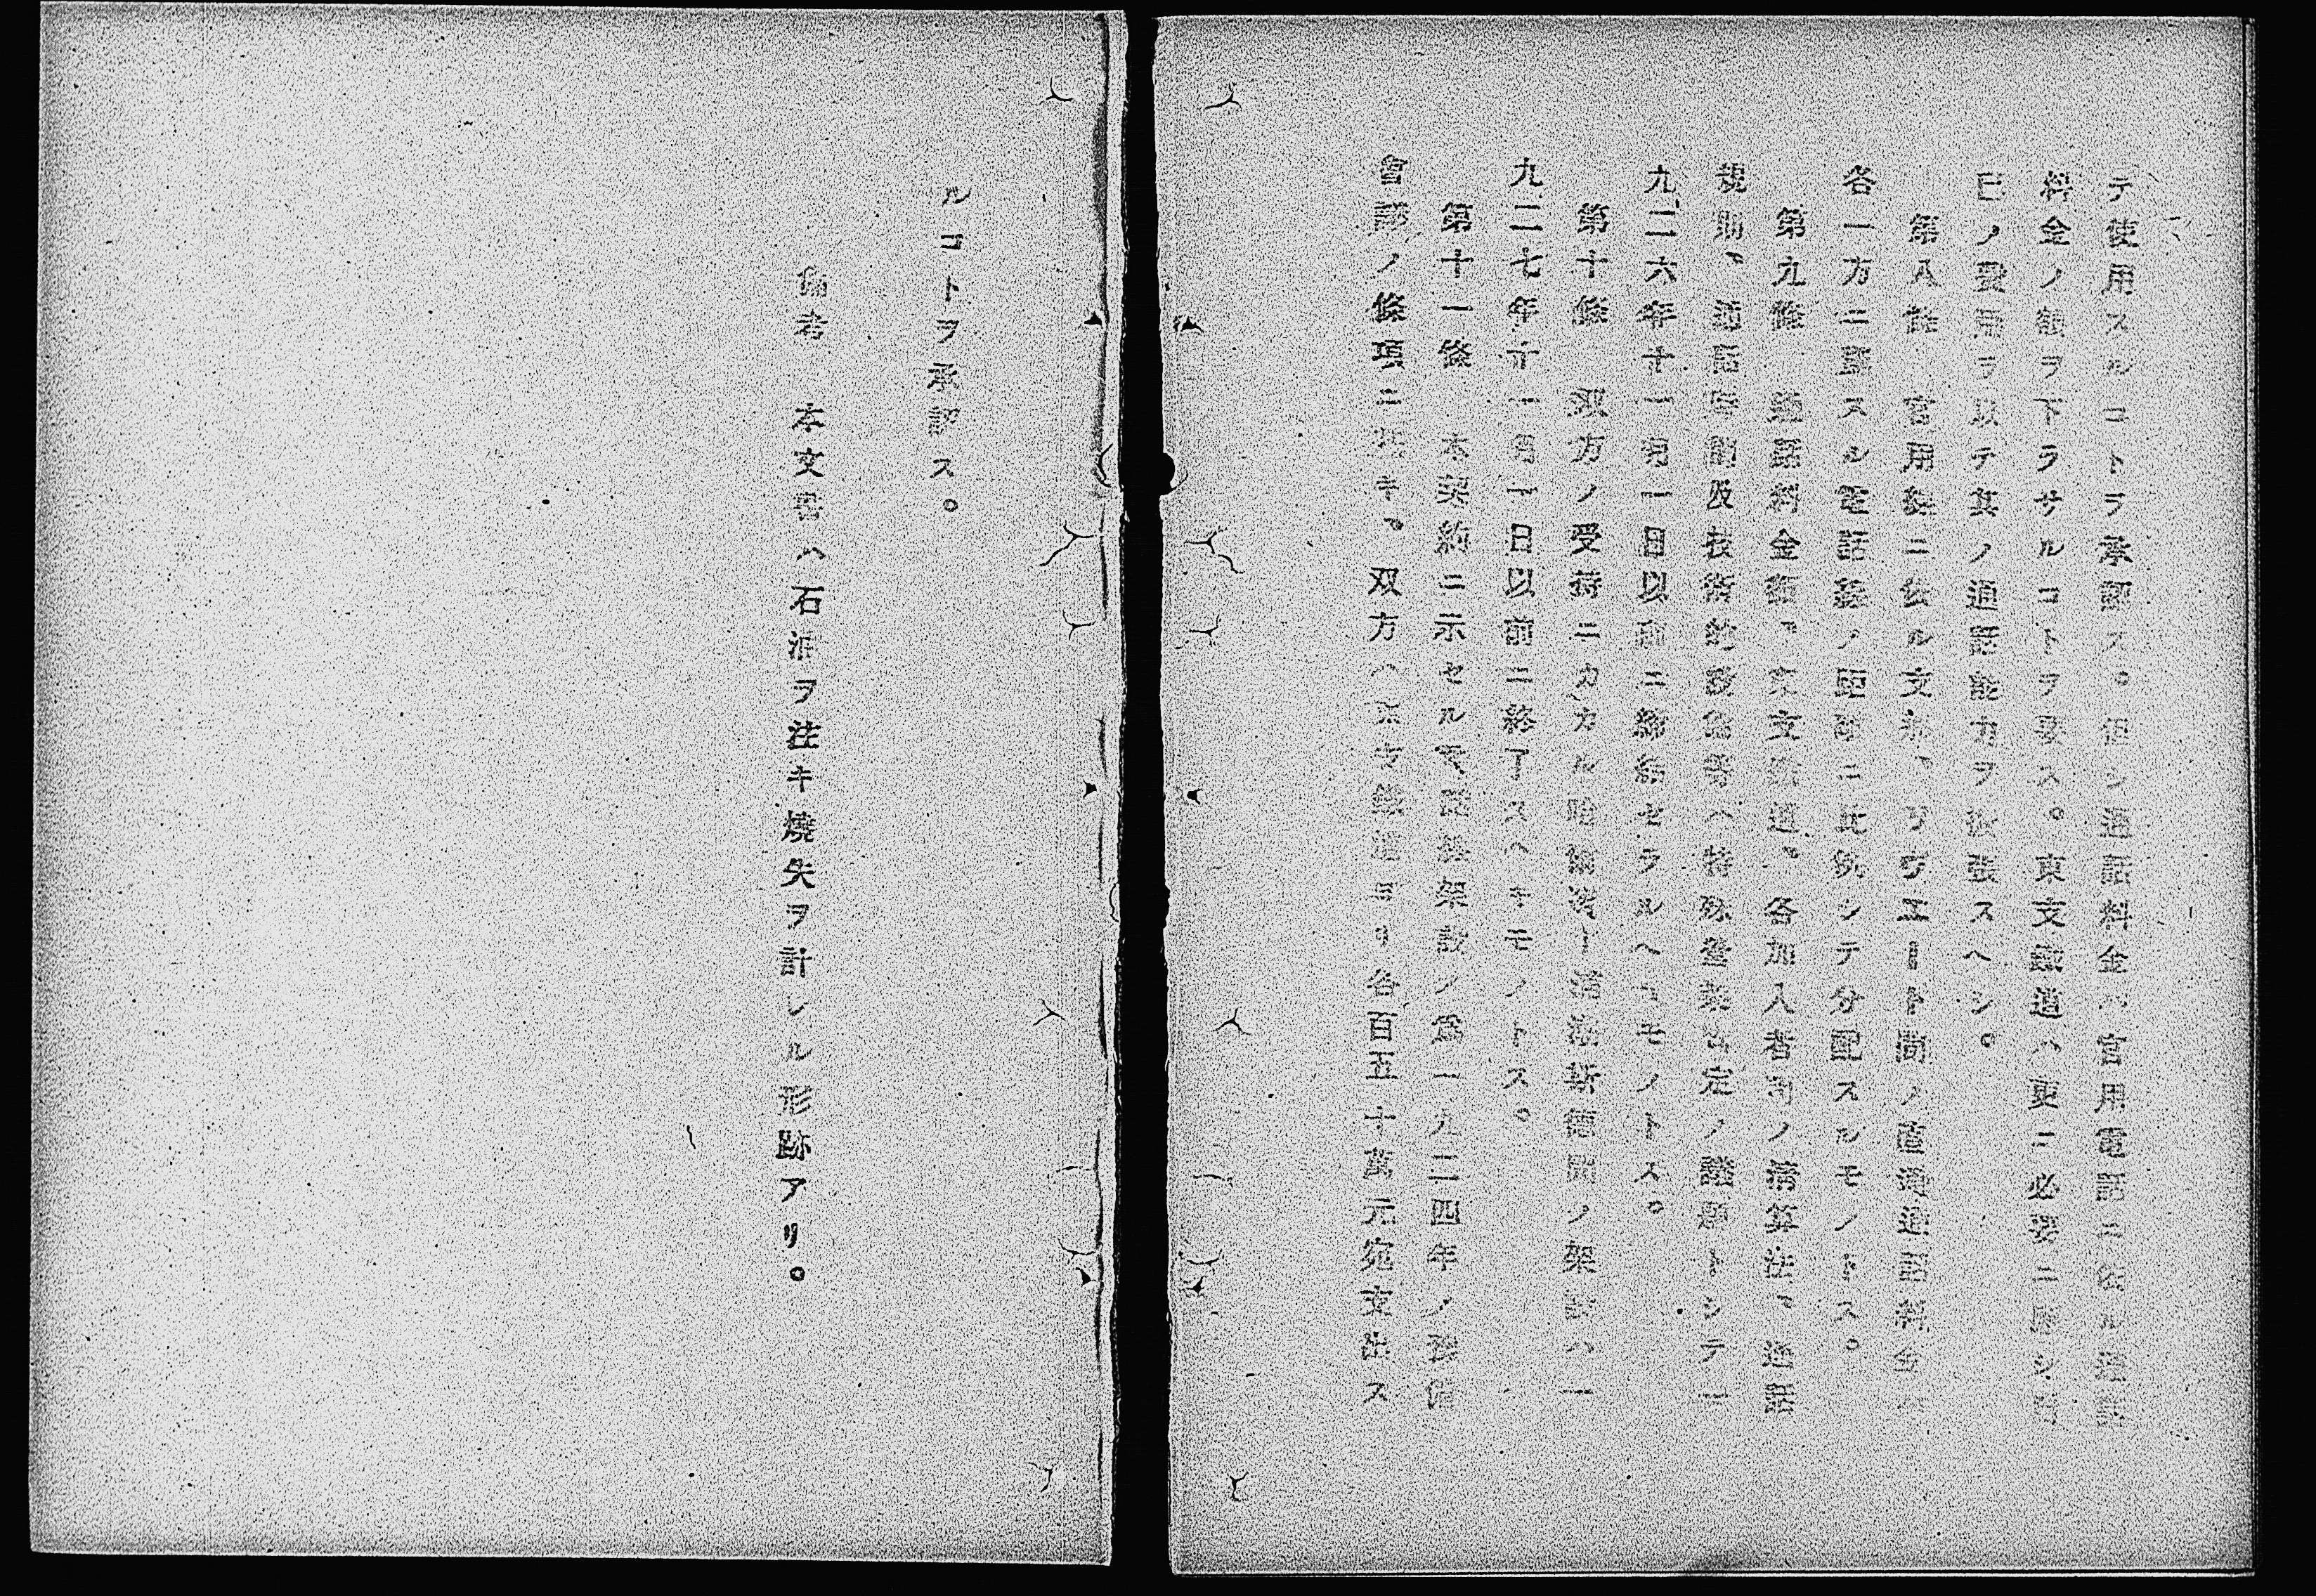 テ使用スルコトヲ承認ス。但シ通話料金ハ官用電話ニ依ル通話
料金ノ額ヲ下ラサルコトヲ要ス。東支鐵道ハ更ニ必要ニ應シ自
已ノ費用ヲ以テ其ノ通話能力ヲ擴張スヘシ。
第八條 官用線ニ依ル支那、ソヴエート間ノ直通通話料金ハ
各一方ニ屬スル電話線ノ距離ニ比例シテ分配スルモノトス。
第九條 通話料金額、交文流通、各加入者間ノ淸算法、通話
規則、通話時間及技術的設備等ハ特殊營業協定ノ議題トシテ一
九二六年十一月一日以前ニ締結セラルヘキモノトス。
第十條 双方ノ受持ニカカル哈爾濱ー浦潮斯德間ノ架設ハ一
九二七年十一月一日以前ニ終了スヘキモノトス。
第十一條 本契約ニ示セル電話線架設ノ爲一九二四年ノ豫備
會議ノ條項ニ基キ、双方ハ東支鐵道ヨリ各百五十萬元宛支出ス
ルコトヲ承認ス。
備考 本文書ハ石油ヲ注キ燒失ヲ計シル形跡アリ。